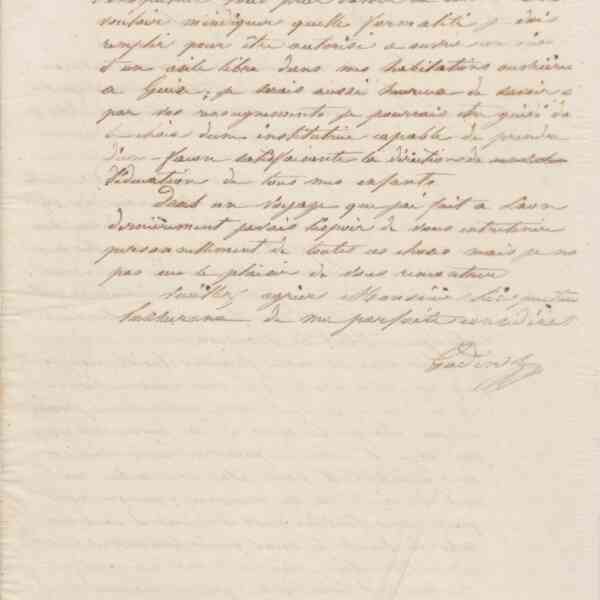 vouloir m'indiquer quelle formalité je dois
remplir pour être autorisé a ouvrir
d'un asile libre dans mes habitations ouvrières
a Guise, je serais aussi heureux de savoir si
par vos renseignements je pourrais être guidé da
le choix d'une institutrice capable de prendre
d'une façon satisfaisante la direction de
l'éducation de tous mes enfants.
Dans un voyage que j'ai fait a Laon
dernièrement j'avais l'espoir de vous entretenir
personnellement de toutes ces choses mais je n'ai
pas eu le plaisir de vous rencontrer
Veuillez agréer Monsieur l'Inspecteur
l'assurance de ma parfaite considérat
Godin